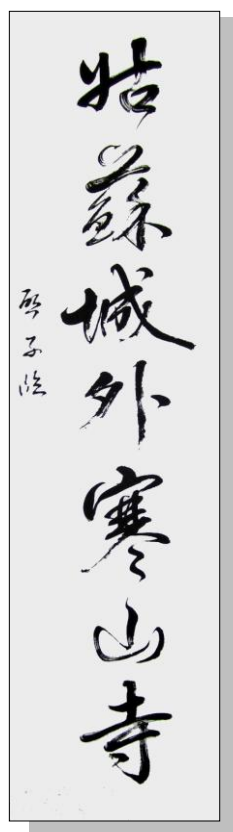 姑蘇城外寒山寺
子臨